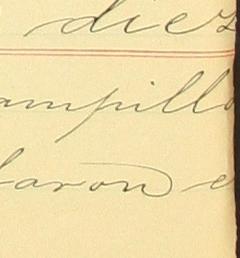 diez
ampillo
laron e